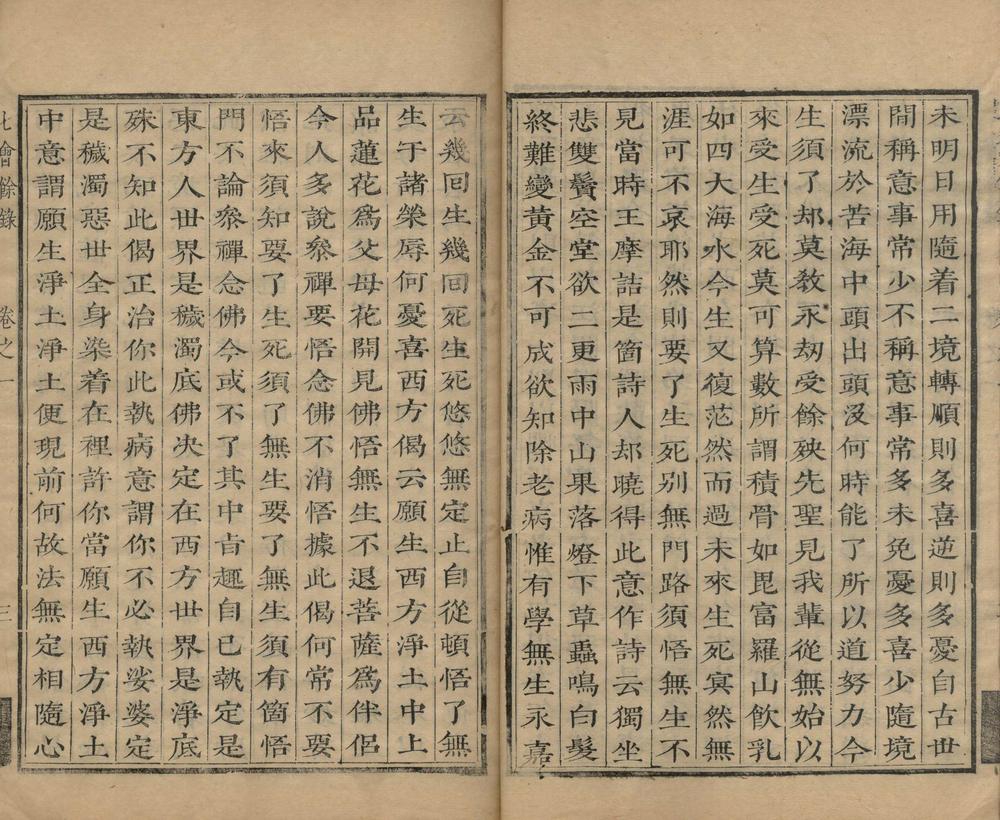 未明日用隨着二境轉順則多喜逆則多憂自古世
間稱意事常少不稱意事常多未免憂多喜少隨境
漂流於苦海中頭出頭没何時能了所以道努力今
生須了却莫教永劫受餘殃先聖見我輩從無始以
來受生受死莫可算數所謂積骨如毘富羅山飲乳
如四大海水今生又復茫然而過未來生死冥然無
涯可不哀耶然則要了生死別無門路須悟無生不
見當時王摩詰是箇詩人却曉得此意作詩云獨坐
悲雙鬢空堂欲二更雨中山果落燈下草蟲鳴白髮
終難變黃金不可成欲知除老病惟有學無生永嘉
云幾回生幾回死生死悠悠無定止自從頓悟了無
生于諸榮辱何憂喜西方偈云願生西方淨土中上
品蓮花為父母花開見佛悟無生不退菩薩為伴侶
今人多說參禪要悟念佛不消悟據此偈何常不要
悟來須知要了生死須了無生要了無生須有箇悟
門不論參禪念佛今或不了其中旨趣自已執定是
東方人世界是穢濁底佛決定在西方世界是淨底
殊不知此偈正治你此執病意謂你不必執娑婆定
是穢濁惡世全身染着在裡許你當願生西方淨土
中意謂願生淨土淨土便現前何故法無定相隨心
會餘錄 卷之一 三